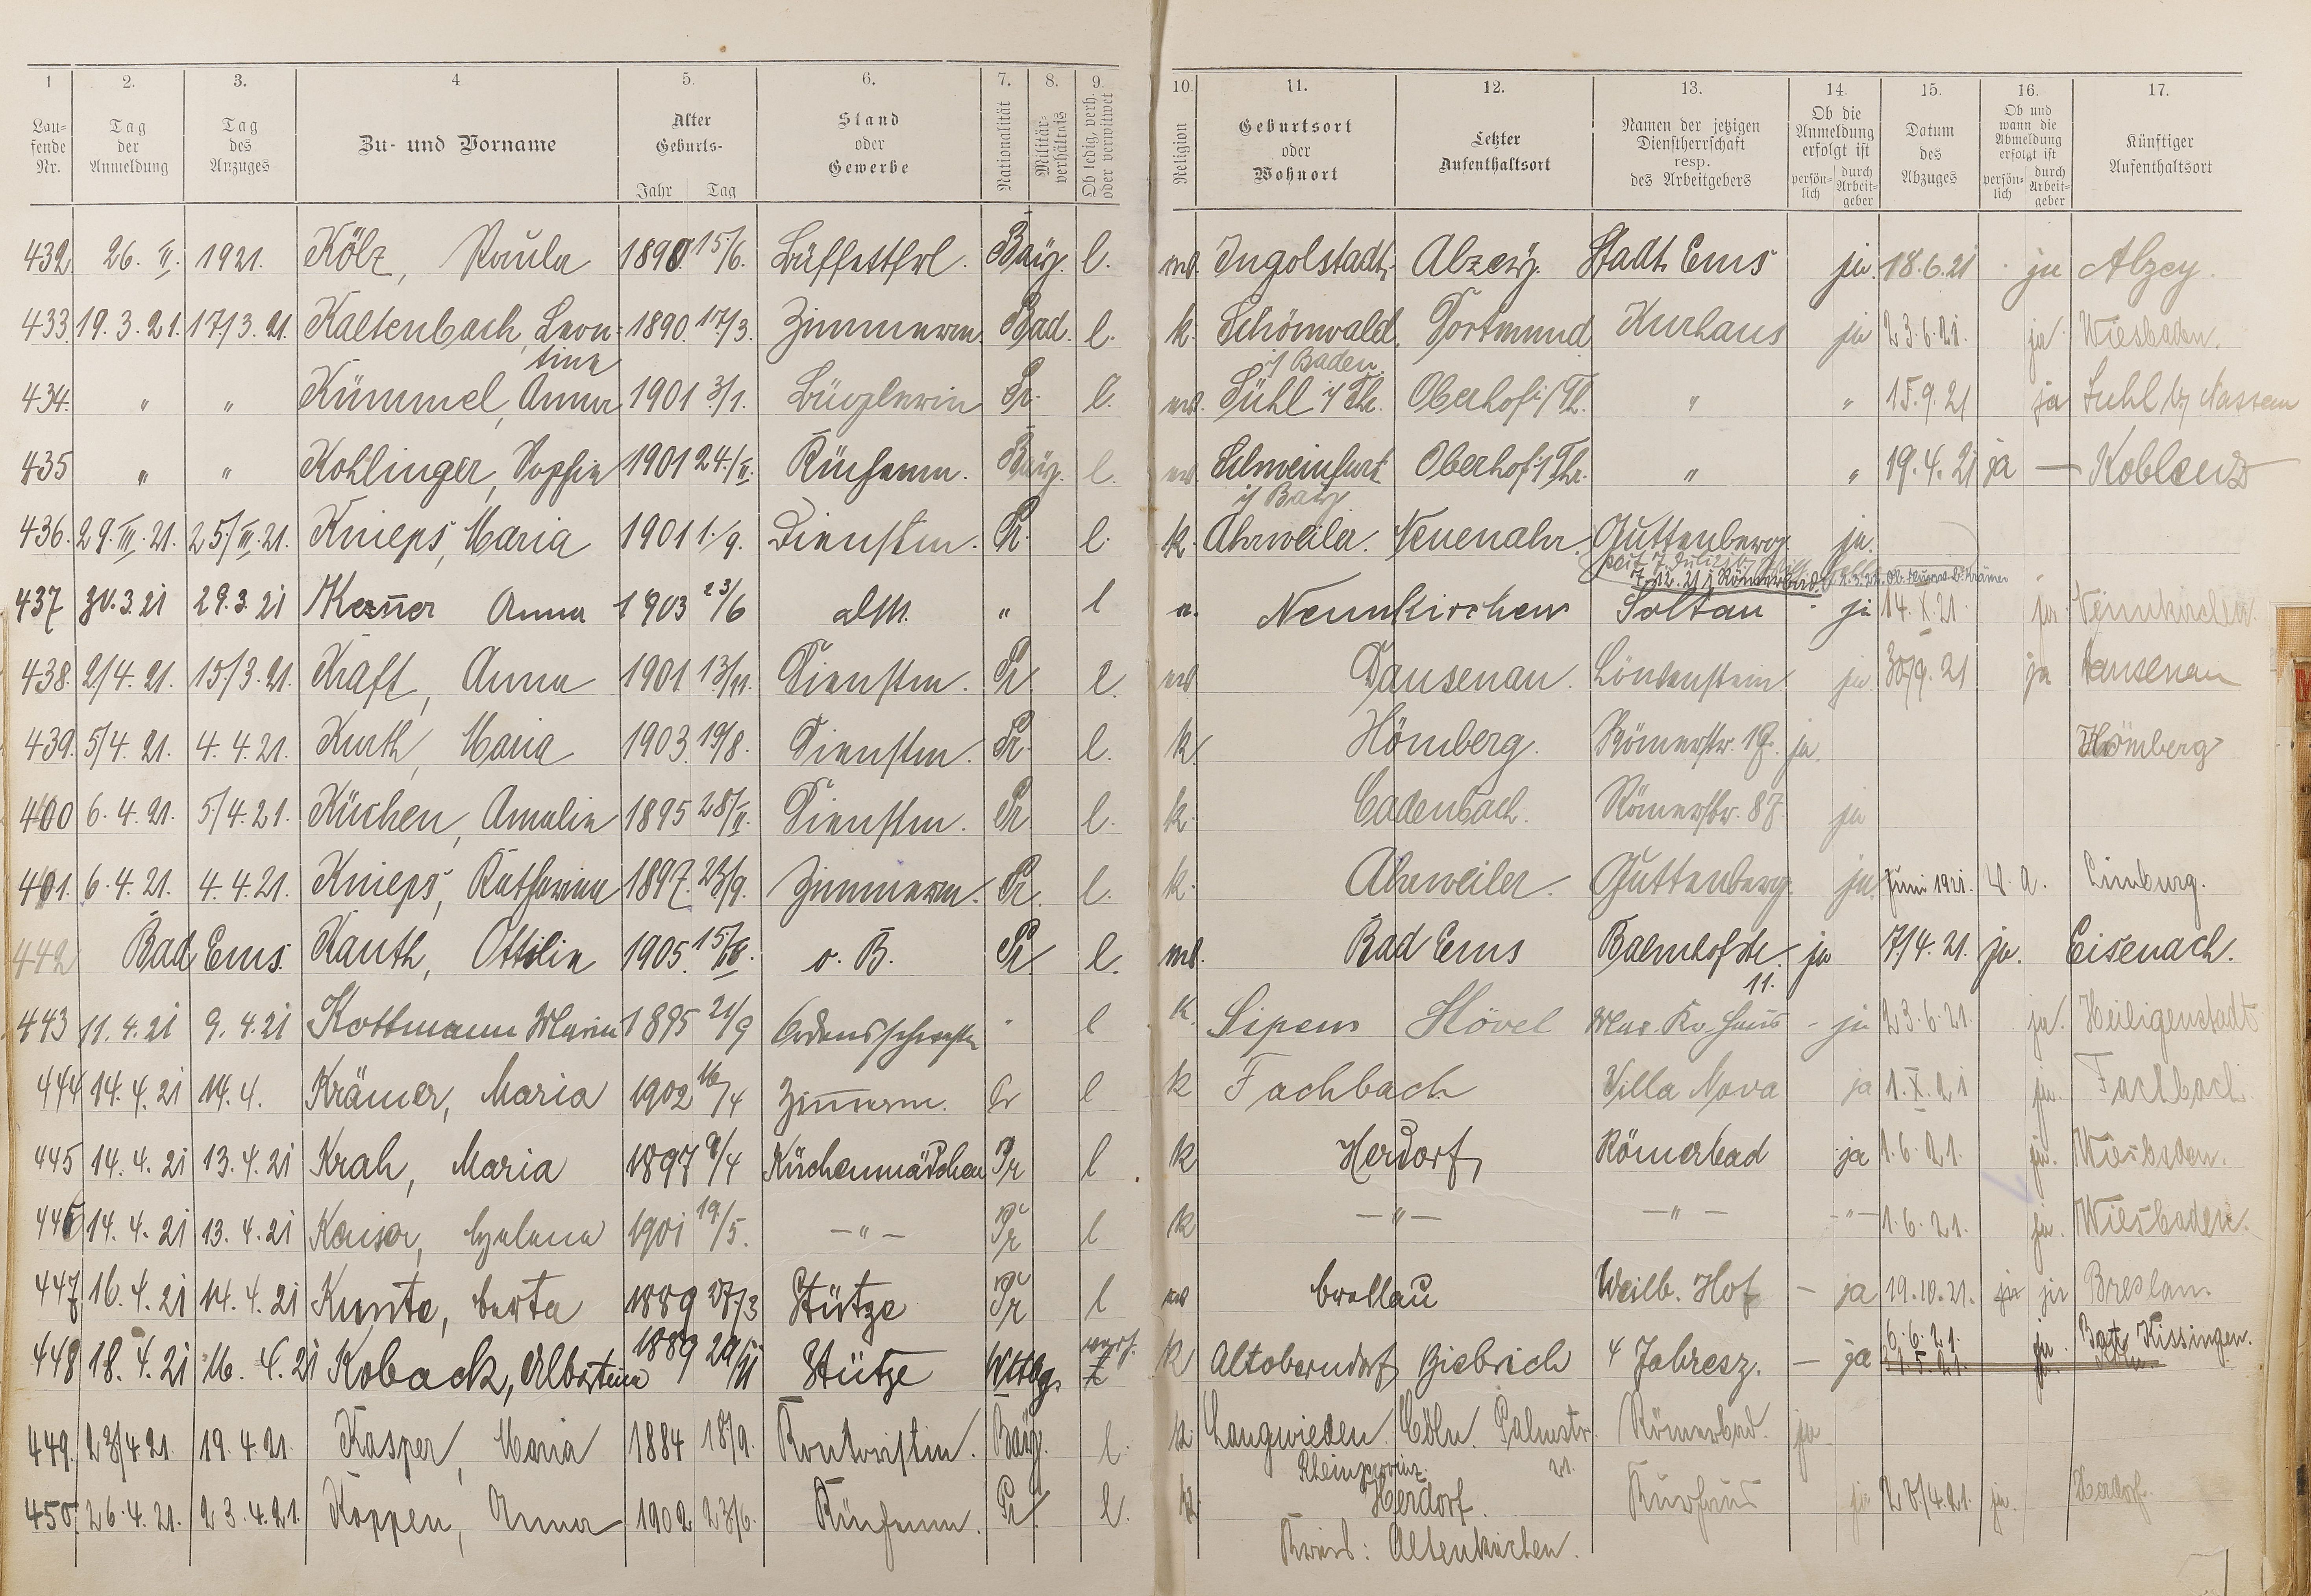 1 2. 3. 4 5. 6. 7. 8. 9. 10. 11. 12. 13. 14. 15. 16. 17.
Lau-
fende
Nr.
Tag
der
Anmeldung
Tag
des
Anzuges
Zu- und Vorname
Alter
Geburts-
Jahr Tag
Stand
oder
Gewerbe
Nationalität
Militär-
verhältnis
Ob ledig, verh.
oder verwitwet
Religion
Geburtsort
oder
Wohnort
Letzter
Aufenthaltsort
Namen der jetzigen
Dienstherrschaft
resp.
des Arbeitgebers
Ob die
Anmeldung
erfolgt ist
persön-
lich
durch
Arbeit-
geber
Datum
des
Abzuges
Ob und
wann die
Abmeldung
erfolgt ist
persön-
lich
durch
Arbeit-
geber
Künftiger
Aufenthaltsort
432 26. II. 1921. Kölz, Paula 1890. 15/6. Büffettfrl. Bay. l. ev. Ingolstadt. Alzey. Stadt Ems ja. 18.6.21 ja Alzey.
433. 19.3.21. 17/3.21. Kaltenbach, Leon- 1890. 17/3. Zimmerm. Bad. l. k. Schönwald. Dortmund Kurhaus ja 23.6.21. ja. Wiesbaden.
tine i/ Baden.
434. " " Kümmel, Anna 1901 3/1. Büglerin Pr. l. ev. Suhl i/ Thr. Oberhof i/ Th. " " 15.9.21 ja Suhl
435 " " Kohlinger, Sophie 1901 24./II. Küchenm. Bay. l. ev. Schweinfurt Oberhof i/ Thr. " " 19.4.21 ja — Koblenz
i/ Bay
436. 29.III.21. 25/III.21. Knieps, Maria 1901 1./9. Dienstm. Pr. l. k. Ahrweiler. Neuenahr. Guttenberg. ja.
seit 7. Juli 21
7.12.21 i Römerbad.
437 30.3.21 29.3.21 Kezner Anna 1903 23/6 alm. " l e. Neunkirchen Soltau - ja 14.X.21. ja. Neunkirchen.
438. 2/4.21. 15/3.21. Kraft, Anna 1901. 13/11. Dienstm. Pr l. ev Dausenau. Löwenstein. ja 30/9.21 ja Dausenau
439. 5/4.21. 4.4.21. Kurth, Maria 1903. 19/8. Dienstm. Pr. l. k. Hömberg. Römerstr. 18. ja. Hömberg
400 6.4.21. 5/4.21. Küchen, Amalie 1895 28/II. Dienstm. Pr l. k. Cadenbach. Römerstr. 87. ja
401. 6.4.21. 4.4.21. Knieps, Katharina 1897. 23/9. Zimmerm. Pr. l. k. Ahrweiler. Guttenberg. ja. Juni 1921. v. a. Limburg.
442 Bad Ems. Kauth, Ottilie 1905. o. B. Pr l. ev. Bad Ems Bahnhofstr. ja 7/4.21. ja. Eisenach.
11.
443 11.4.21 9.4.21 Kottmann Maria 1895 21/9 Ordensschwester " l k. Sipem Hövel - ja 23.6.21. ja. Heiligenstadt
444 14.4.21 14.4. Krämer, Maria 1902 16/4 Zimmerm. Pr l k Fachbach Villa Nova ja 1.X.21 ja. Fachbach.
445 14.4.21 13.4.21 Krah, Maria 1897 9/4 Küchenmädchen Pr l k Herdorf, Römerbad ja 1.6.21. ja. Wiesbaden.
446 14.4.21 13.4.21 Kaiser, Helena 1901 19./5. —"— Pr l k —"— —"— —"— 1.6.21. ja. Wiesbaden.
447 16.4.21 14.4.21 Kunte, Berta 1889 27/3 Stütze Pr l ev Breslau Weilb. Hof — ja 19.10.21. ja ja Breslau.
448 18.4.21 16.4.21 Koback, Albertina 1889 Stütze Wttbg. k Altoberndorf Biebrich 4 Jahresz. — ja 6.6.21. ja. Bad Kissingen.
31.5.21.
449. 23/4 21. 19.4 21. Kasper, Maria 1884 18/9. Kontoristin. Bay. l. k Langwieden. Cöln. Palmstr. Römerbad. ja
Rheinprovinz. 21.
450. 26.4.21. 23.4.21. Koppen, Anna 1902 23/6. Küchenm. Pr. l. k. Herdorf. Kurhaus ja 28/4.21. ja. Herdorf.
Kreis: Altenkirchen.